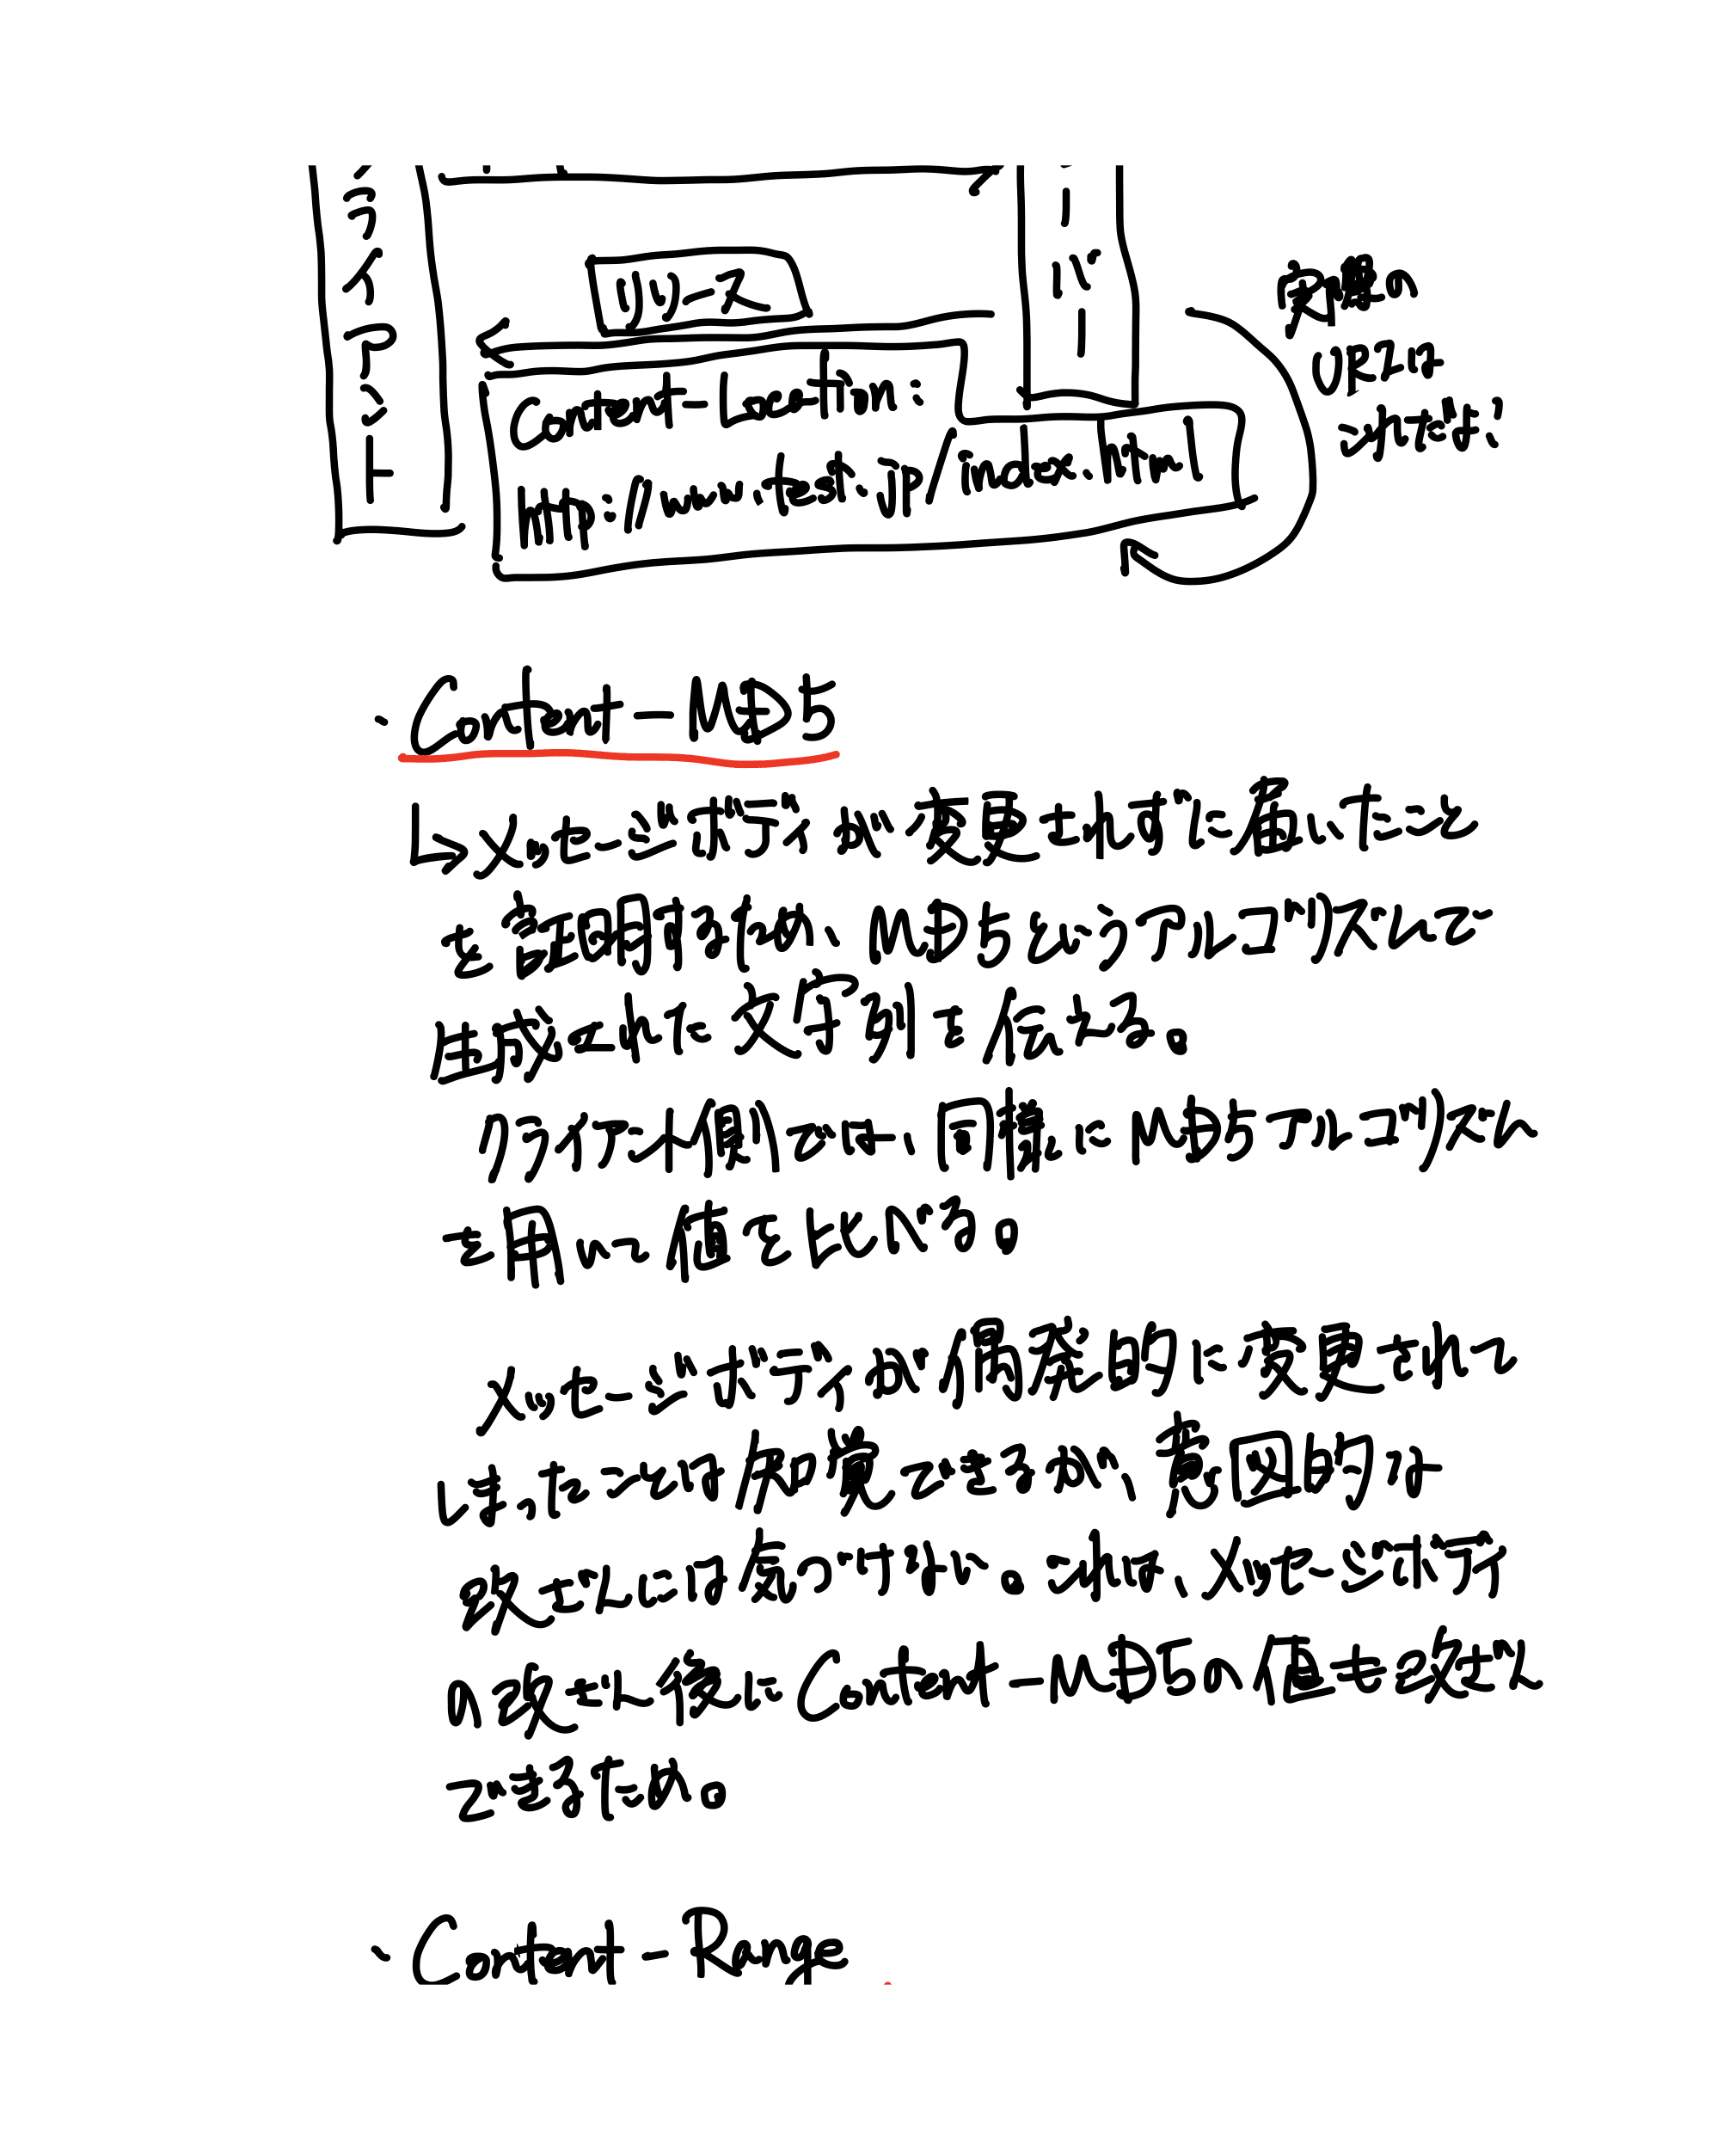 ライアント
ーバー
リソース
Content-Location:
http://www.test.jp/index.html
実際の
URLは
これだよ!
・Content-MD5
↳メッセージボディが変更されずに届いたこと
を証明するため、MD5というアルゴリズムで
生成された文字列を伝える。
クライアント側では、同様にMD5アルゴリズム
を用いて値を比べる。
メッセージボディが偶発的に変更されて
しまったことは知覚できるが、意図的な
改ざんには気づけない。これは、メッセージボディ
の改ざん後にContent-MD5の値も改ざん
できるため。
・Content-Range